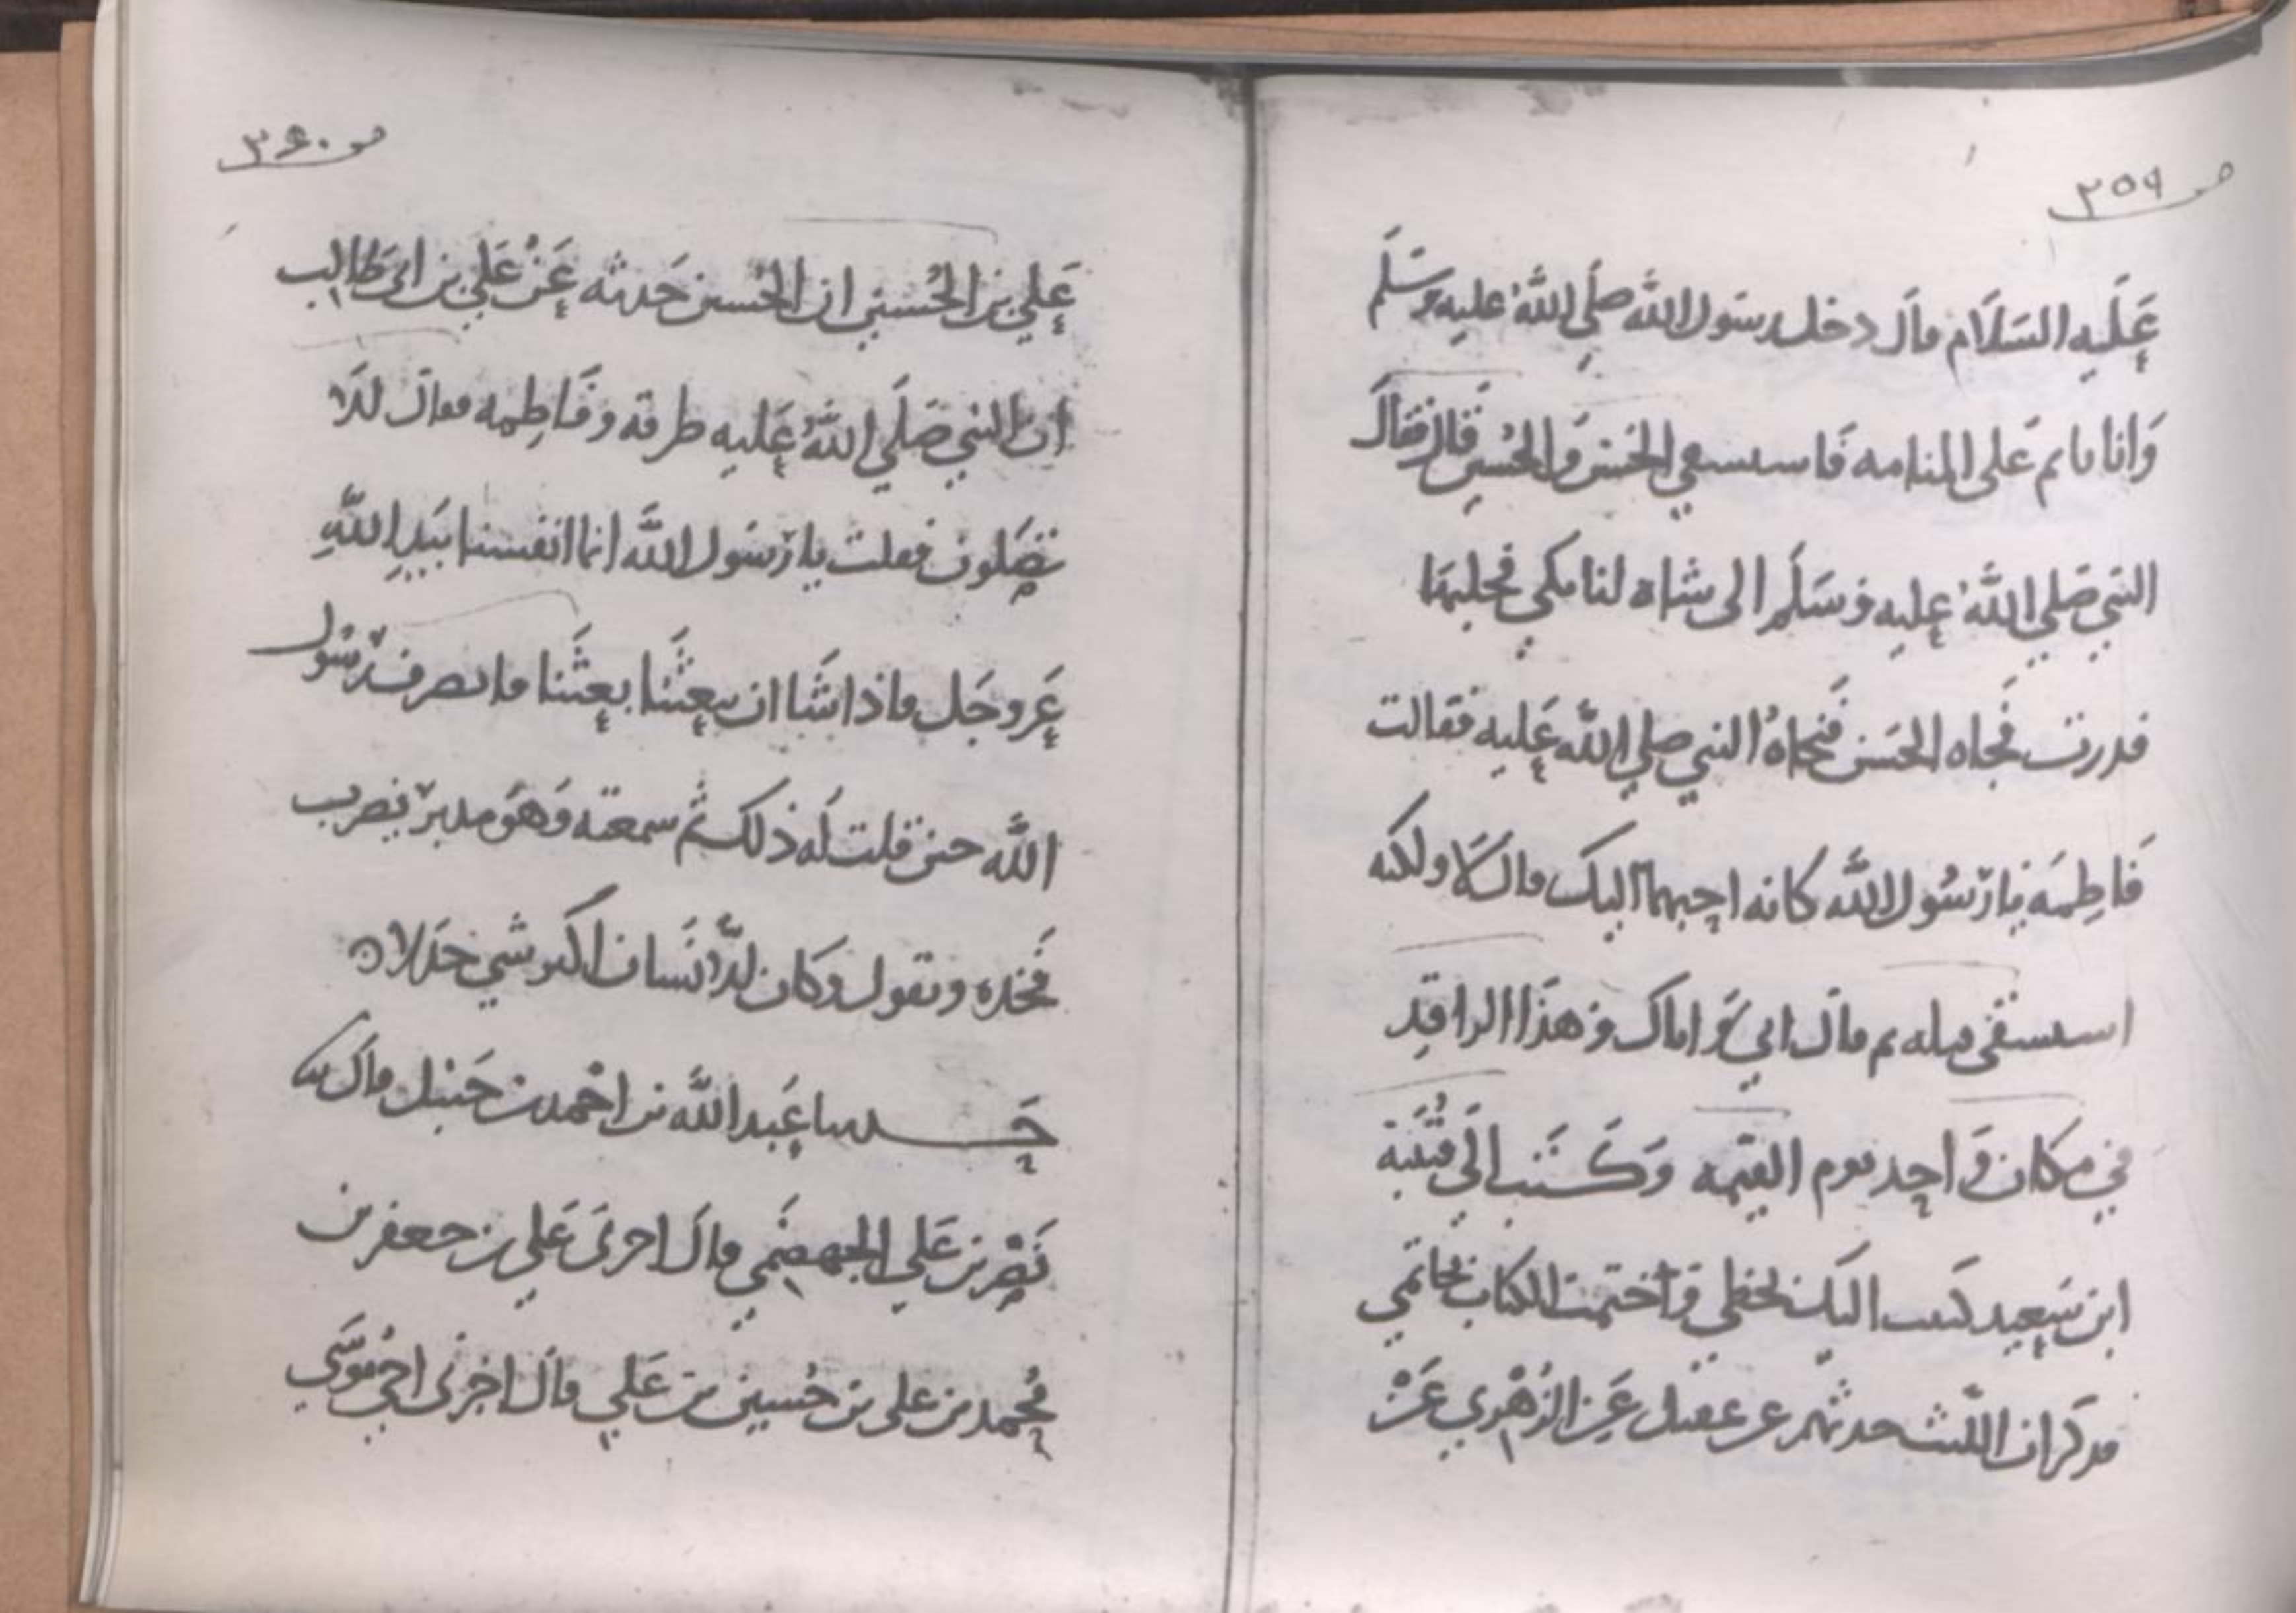 ص ٣٥٩
عَلَيه السَلَام قالَ دخل رسَول الله صلَي اللهُ عليه وسَلَم
وَانا نايم عَلى المنامه فَاستسقي الحَسن وَالحُسين قالَ فقالَ
النبي صَلي اللهُ عليه وَسَلَم الى شاة لنا بكي فحلبها
فدرت فَجاه الحَسَن فَنحاهُ النبي صلي الله عَليه فقالت
فَاطِمَه يا رَسُول الله كانه احبهما اليك قال لَا ولكنه
استسقى قبله ثم قالَ اني وَاياك وَهذَا الراقِد
في مكان وَاحِد يوم القيمه وَكَتَب الَي قُتَيبَة
ابن سَعِيد كتبت اليك بخطي وَاختمت الكتاب بخاتمي
يذكر ان الليث حدثهم عن عقيل عَن الزُهري عَنْ
ص ٣٦٠
عَلي بن الحُسين ان الحُسين حَدثه عَنْ عَلي بن ابى طَالِب
ان النبي صَلَي اللهُ عَليه طرقه وفَاطِمه فقالَ الَا
تصَلون فقلت يا رَسَول الله انما انفسنا بيَدِ اللهِ
عَز وجَل فاذا شَا ان يبعثَنا بعثَنا فانصرف رَسُول
الله حين قلت لَه ذلك ثم سمعته وَهوَ مدبر يضرب
فَخذه ويقول وكَان الانسَان اكثر شي جَدَلا ۝
حَدثنا عَبد الله بن احْمد بن حَنبل قالَ ثنا
نَصْر بن عَلي الجهضَمي قالَ اخبرنى عَلي بن جعفر بن
مُحمد بن على بن حُسين بن عَلي قالَ اخبرنى اخي مُوسَي